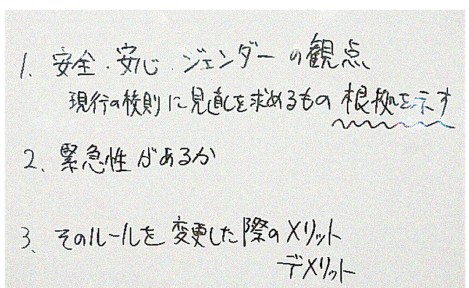 1. 安全・安心・ジェンダーの観点
現行の校則に見直しを求めるもの 根拠を示す
2. 緊急性があるか
3. そのルールを変更した際のメリット
デメリット